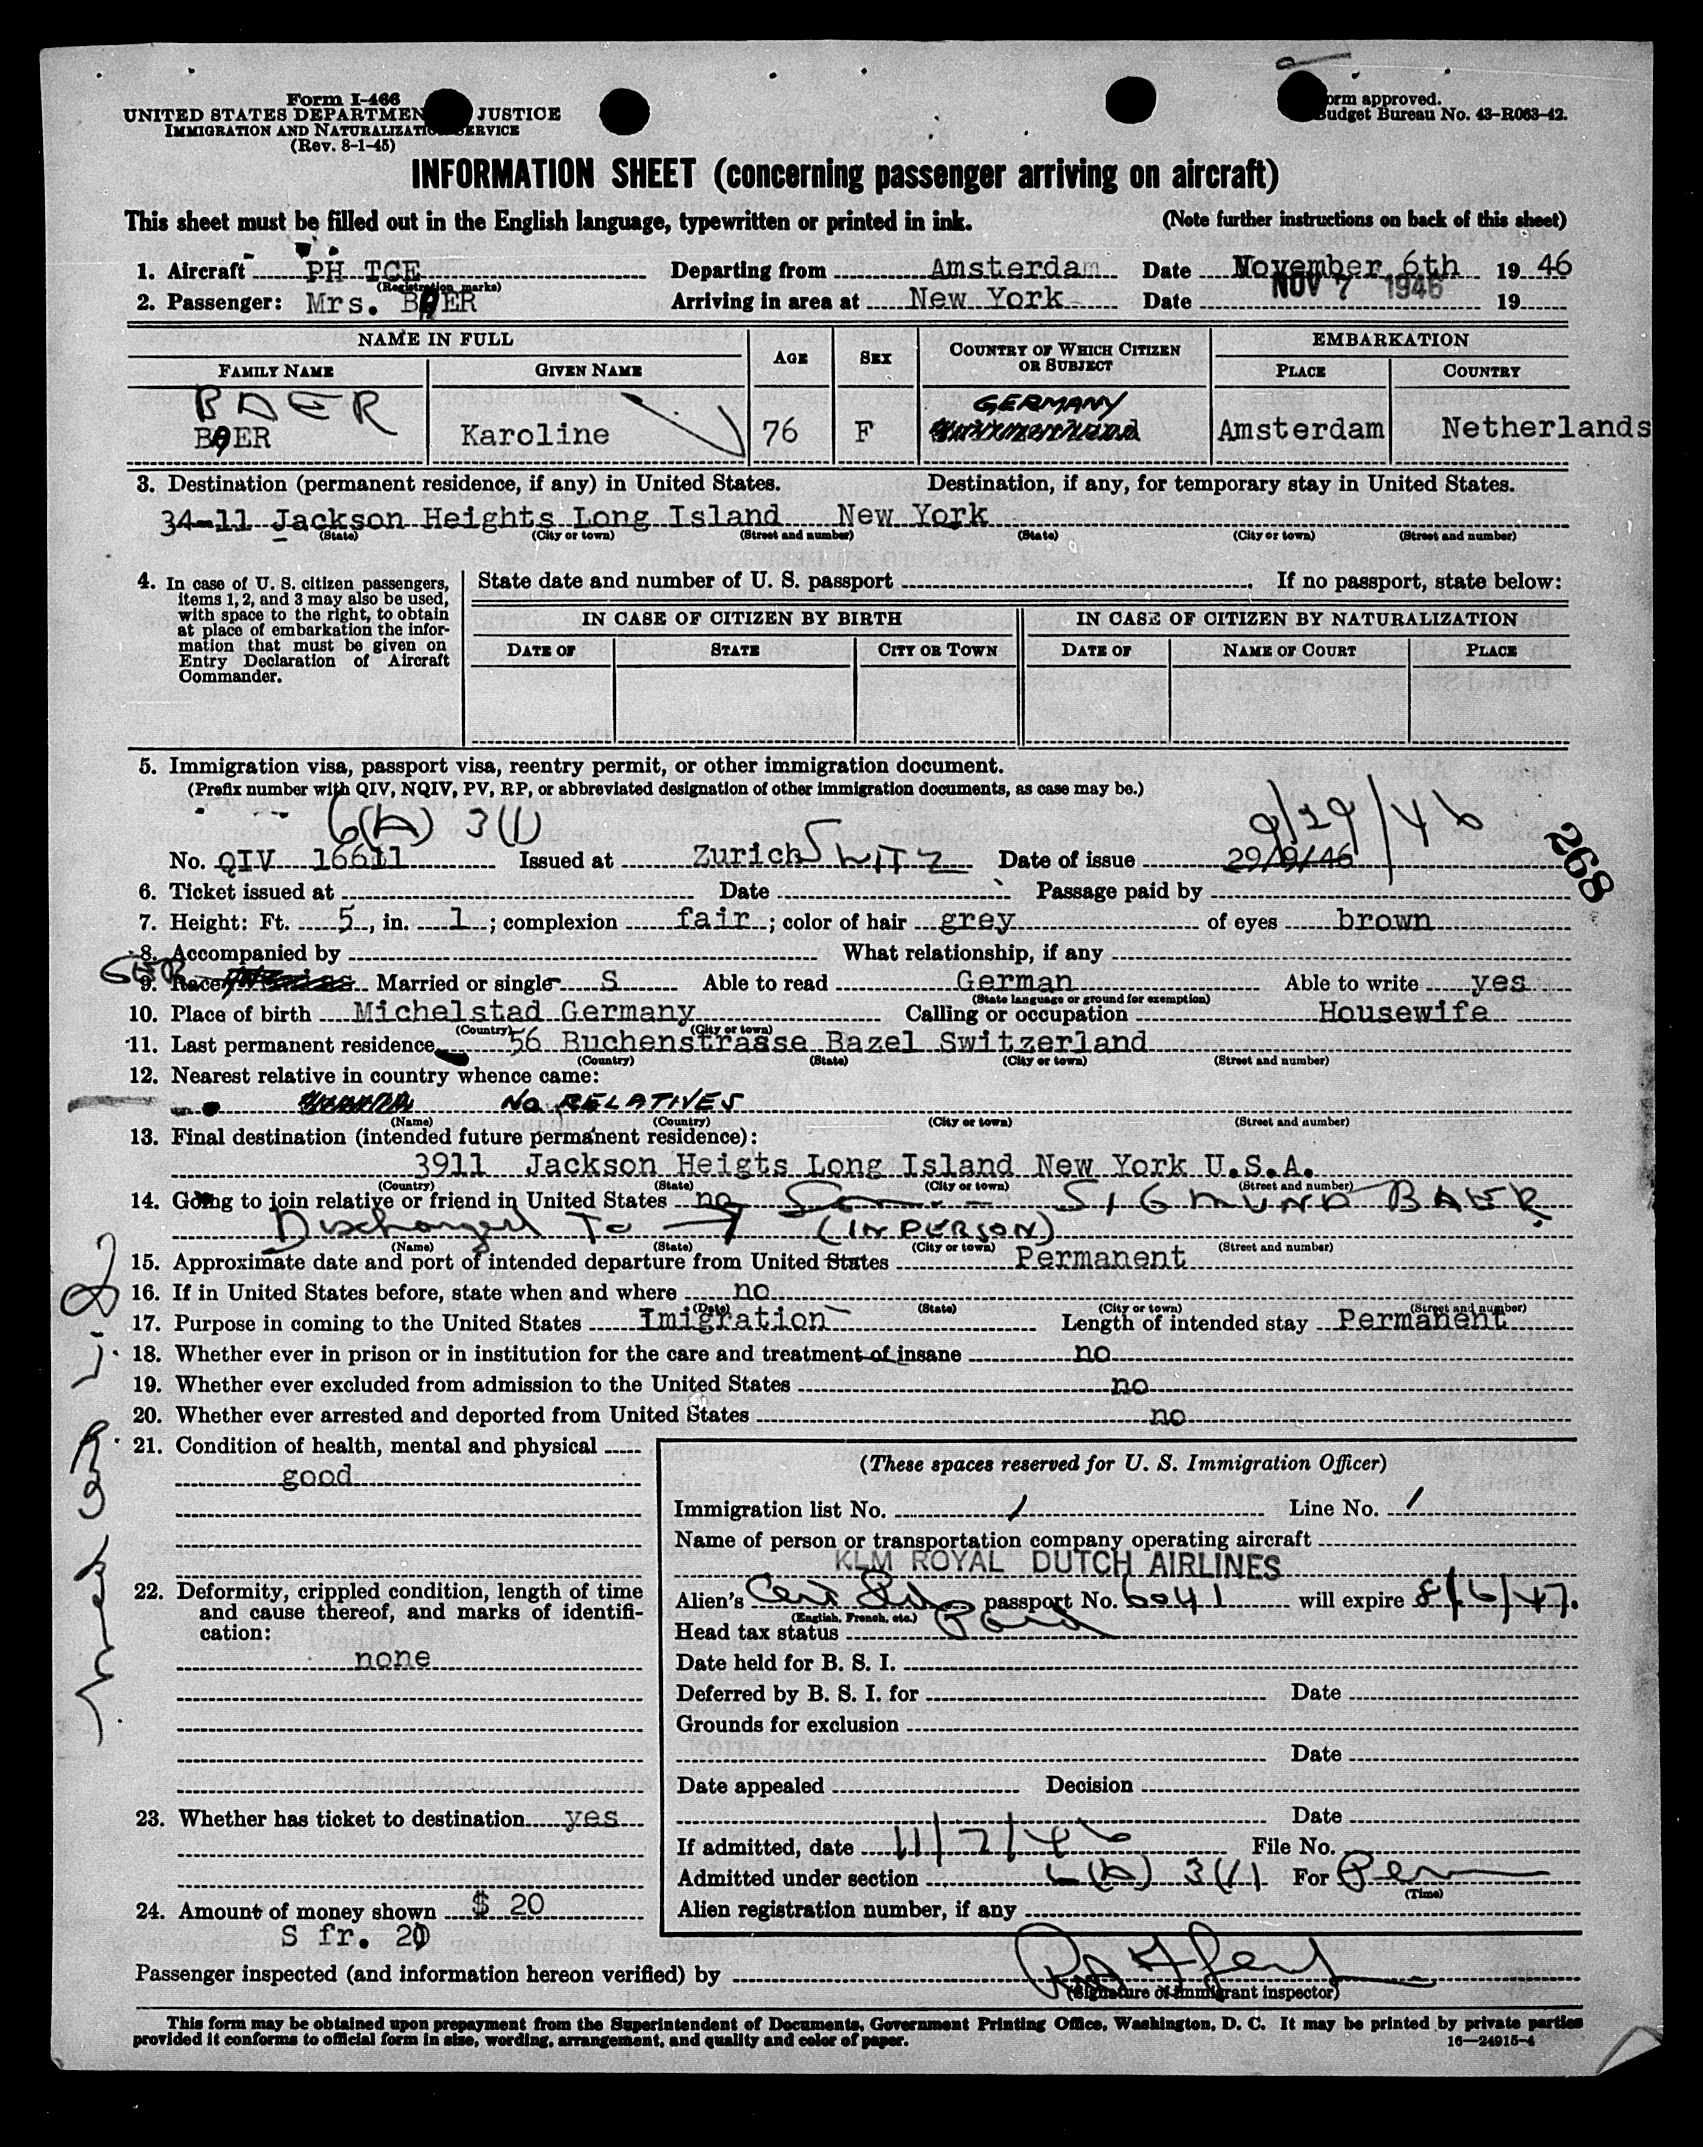 Form I-466
UNITED STATES DEPARTMEN JUSTICE
IMMIGRATION AND NATURALIZATIO SERVICE
(Rev. 8-1-45)
orm approved.
Budget Bureau No. 43-R063-42.
INFORMATION SHEET (concerning passenger arriving on aircraft)
This sheet must be filled out in the English language, typewritten or printed in ink. (Note further instructions on back of this sheet)
1. Aircraft PH TCE Departing from Amsterdam Date November 6th 19 46
(Registration marks)
2. Passenger: Mrs. BAER Arriving in area at New York Date NOV 7 1946 19
NAME IN FULL AGE SEX COUNTRY OF WHICH CITIZEN OR SUBJECT EMBARKATION
FAMILY NAME GIVEN NAME PLACE COUNTRY
BAER GERMANY
BAER Karoline 76 F Amsterdam Netherlands
3. Destination (permanent residence, if any) in United States. Destination, if any, for temporary stay in United States.
34-11 Jackson Heights Long Island New York
(State) (City or town) (Street and number) (State) (City or town) (Street and number)
4. In case of U. S. citizen passengers, items 1, 2, and 3 may also be used, with space to the right, to obtain at place of embarkation the information that must be given on Entry Declaration of Aircraft Commander.
State date and number of U. S. passport If no passport, state below:
IN CASE OF CITIZEN BY BIRTH IN CASE OF CITIZEN BY NATURALIZATION
DATE OF STATE CITY OR TOWN DATE OF NAME OF COURT PLACE
5. Immigration visa, passport visa, reentry permit, or other immigration document.
(Prefix number with QIV, NQIV, PV, RP, or abbreviated designation of other immigration documents, as case may be.)
6(A) 3(1) 9/29/46
No. QIV 16611 Issued at Zurich SWITZ Date of issue 29/9/46
268
6. Ticket issued at Date Passage paid by
7. Height: Ft. 5, in. 1; complexion fair; color of hair grey of eyes brown
8. Accompanied by What relationship, if any
GER
9. Race Married or single S Able to read German Able to write yes
(State language or ground for exemption)
10. Place of birth Michelstad Germany Calling or occupation Housewife
(Country) (City or town)
11. Last permanent residence 56 Buchenstrasse Bazel Switzerland
(Country) (State) (City or town) (Street and number)
12. Nearest relative in country whence came:
NO RELATIVES
(Name) (Country) (City or town) (Street and number)
13. Final destination (intended future permanent residence):
3911 Jackson Heigts Long Island New York U.S.A.
(Country) (State) (City or town) (Street and number)
14. Going to join relative or friend in United States no Son - SIGMUND BAER
Discharged To (IN PERSON)
(Name) (State) (City or town) (Street and number)
15. Approximate date and port of intended departure from United States Permanent
16. If in United States before, state when and where no
(Date) (State) (City or town) (Street and number)
17. Purpose in coming to the United States Imigration Length of intended stay Permanent
18. Whether ever in prison or in institution for the care and treatment of insane no
19. Whether ever excluded from admission to the United States no
20. Whether ever arrested and deported from United States no
21. Condition of health, mental and physical
good
22. Deformity, crippled condition, length of time and cause thereof, and marks of identification:
none
23. Whether has ticket to destination yes
24. Amount of money shown $ 20
S fr. 20
(These spaces reserved for U. S. Immigration Officer)
Immigration list No. 1 Line No. 1
Name of person or transportation company operating aircraft
KLM ROYAL DUTCH AIRLINES
Alien's passport No. 6041 will expire 8/6/47.
(English, French, etc.)
Head tax status Paid
Date held for B. S. I.
Deferred by B. S. I. for Date
Grounds for exclusion
Date
Date appealed Decision
Date
If admitted, date 11/7/46 File No.
Admitted under section 6(A) 3(1) For Perm
(Time)
Alien registration number, if any
Passenger inspected (and information hereon verified) by
(Signature of immigrant inspector)
This form may be obtained upon prepayment from the Superintendent of Documents, Government Printing Office, Washington, D. C. It may be printed by private parties
provided it conforms to official form in size, wording, arrangement, and quality and color of paper. 16—24915-4